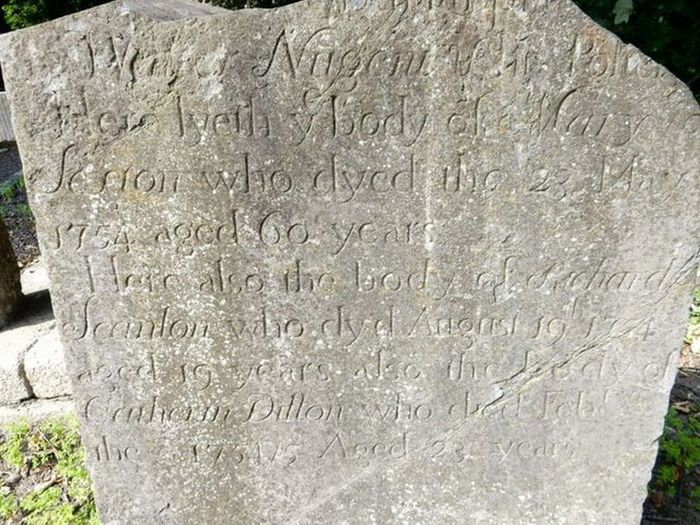 Nugent
Here lyeth y body of Mary
Sexton who dyed the 23 May
1754 aged 60 years
Here also the body of Richard
Scanlon who dyd August 19th
aged 19 years also the body of
Catherin Dillon who dyed Feb
the 1754/5 Aged 23 years